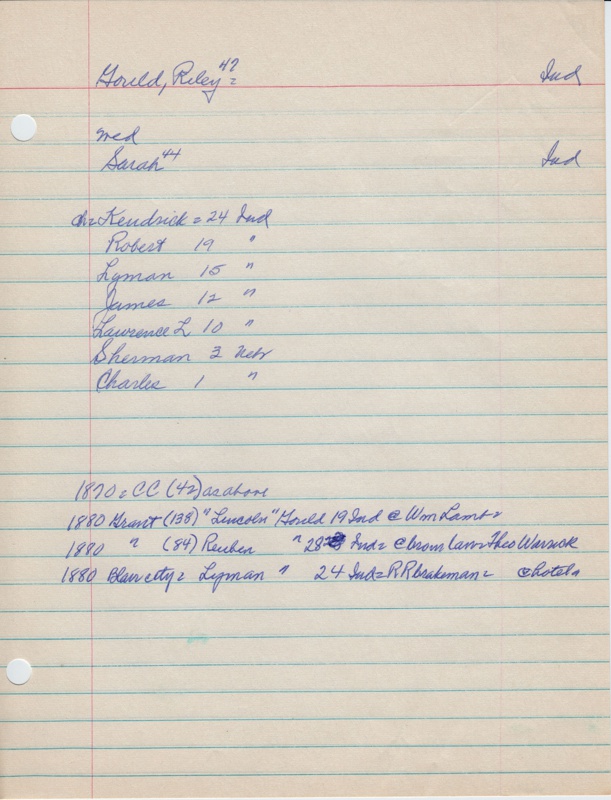 Gould, Riley 47 = Ind
wed
Sarah 44 Ind
ch = Kendrick = 24 Ind
Robert 19 "
Lyman 15 "
James 12 "
Lawrence L 10 "
Sherman 3 Nebr
Charles 1 "
1870 = CC (42) as above
1880 Grant (138) "Lincoln" Gould 19 Ind @ Wm Lamb =
1880 " (84) Reuben " 28 Ind = @ bro in law = Theo Warrick
1880 Blair city = Lyman " 24 Ind = RR brakeman = @ hotel =